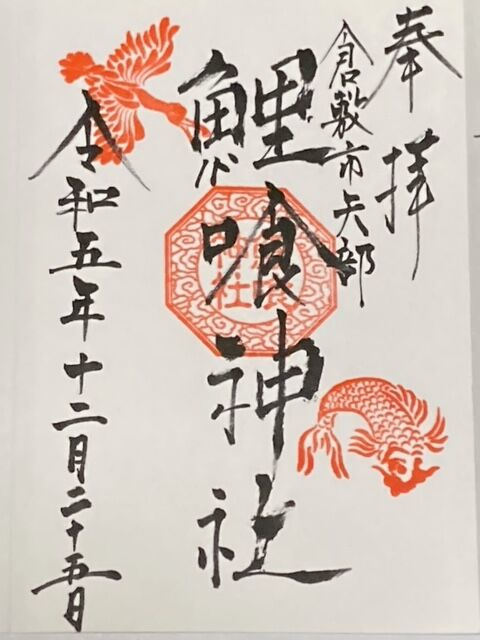 奉拝
倉敷市矢部
鯉喰神社
令和五年十二月二十五日